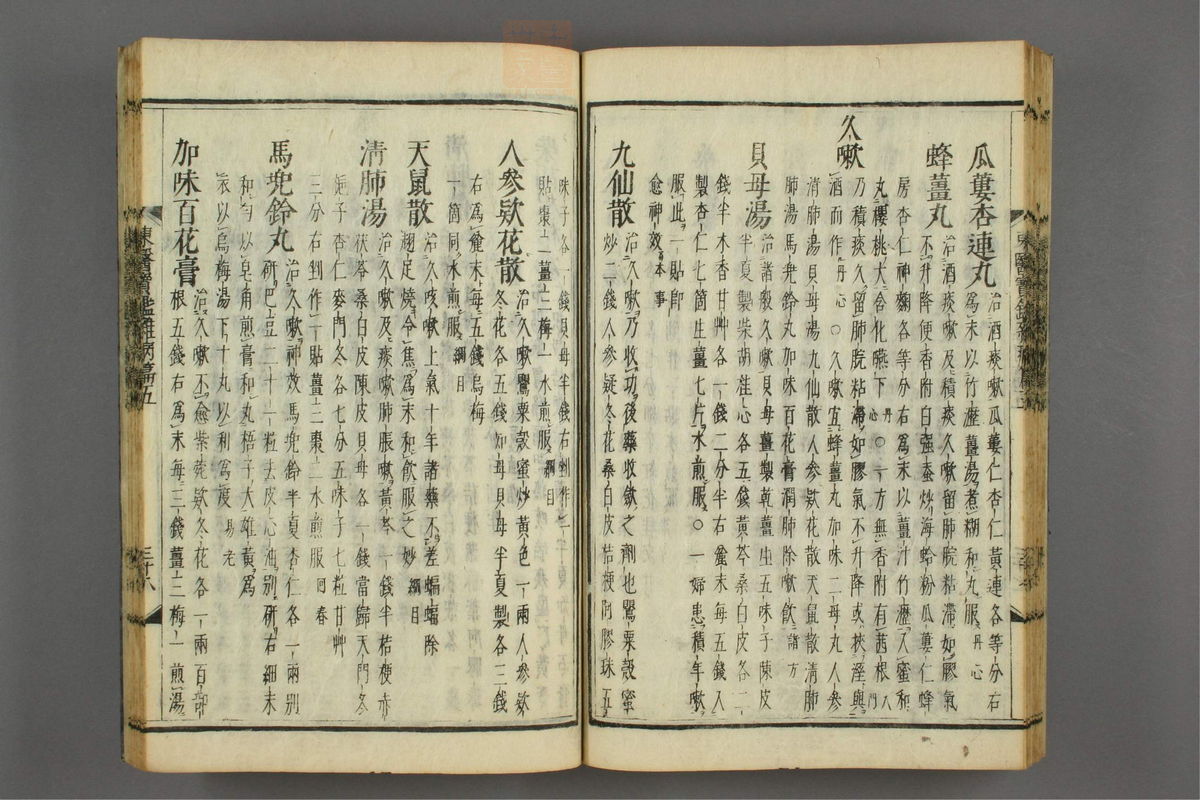 瓜蔞杏連丸治酒痰嗽瓜蔞仁杏仁黃連各等分右
爲末以竹瀝薑湯煮糊和丸服丹心
蜂薑丸治酒痰嗽及積痰久嗽留肺脘粘滯如膠氣
不升降便香附白殭蚕炒海蛤粉瓜蔞仁蜂
房杏仁神麴各等分右爲末以薑汁竹瀝入蜜和
丸櫻桃大含化嚥下丹心○一方無香附有茜根入門
久嗽乃積痰久留肺脘粘滯如膠氣不升降或挾溼與
酒而作丹心○久嗽宜蜂薑丸加味二母丸人參
淸肺湯貝母湯九仙散人參款花散天鼠散淸肺
肺湯馬兠鈴丸加味百花膏潤肺除嗽飮諸方
貝母湯治諸般久嗽貝母薑製乾薑生五味子陳皮
半夏製柴胡桂心各五錢黃芩桑白皮各二
錢半木香甘艸各一錢二分半右麄末每五錢入
製杏仁七箇生薑七片水煎服○一婦患積年嗽
服此一貼卽
愈神效本事
九仙散治久嗽乃收功後藥收斂之劑也罌粟殼蜜
炒二錢人參款冬花桑白皮桔梗阿膠珠五
味子各一錢貝母半錢右剉作一
貼棗二薑三梅一水煎服綱目
人參款花散治久嗽罌粟殼蜜炒黃色一兩人參款
冬花各五錢知母貝母半夏製各三錢
右爲麄末每五錢烏梅
一箇同水煎服綱目
天鼠散治久咳嗽上氣十年諸藥不差蝙蝠除
翅足燒令焦爲末和飮服之妙綱目
淸肺湯治久嗽及痰嗽肺脹嗽黃芩一錢半桔梗赤
茯苓桑白皮陳皮貝母各一錢當歸天門冬
梔子杏仁麥門冬各七分五味子七粒甘艸
三分右剉作一貼薑三棗二水煎服回春
馬兠鈴丸治久嗽神效馬兠鈴半夏杏仁各一兩別
研巴豆二十一粒去皮心油別研右細末
和勻以皂角煎膏和丸梧子大雄黃爲
衣以烏梅湯下十丸以利爲度易老
加味百花膏治久嗽不愈紫菀款冬花各一兩百部
根五錢右爲末每三錢薑三梅一煎湯
東醫寶鑑雜病篇五
三十八